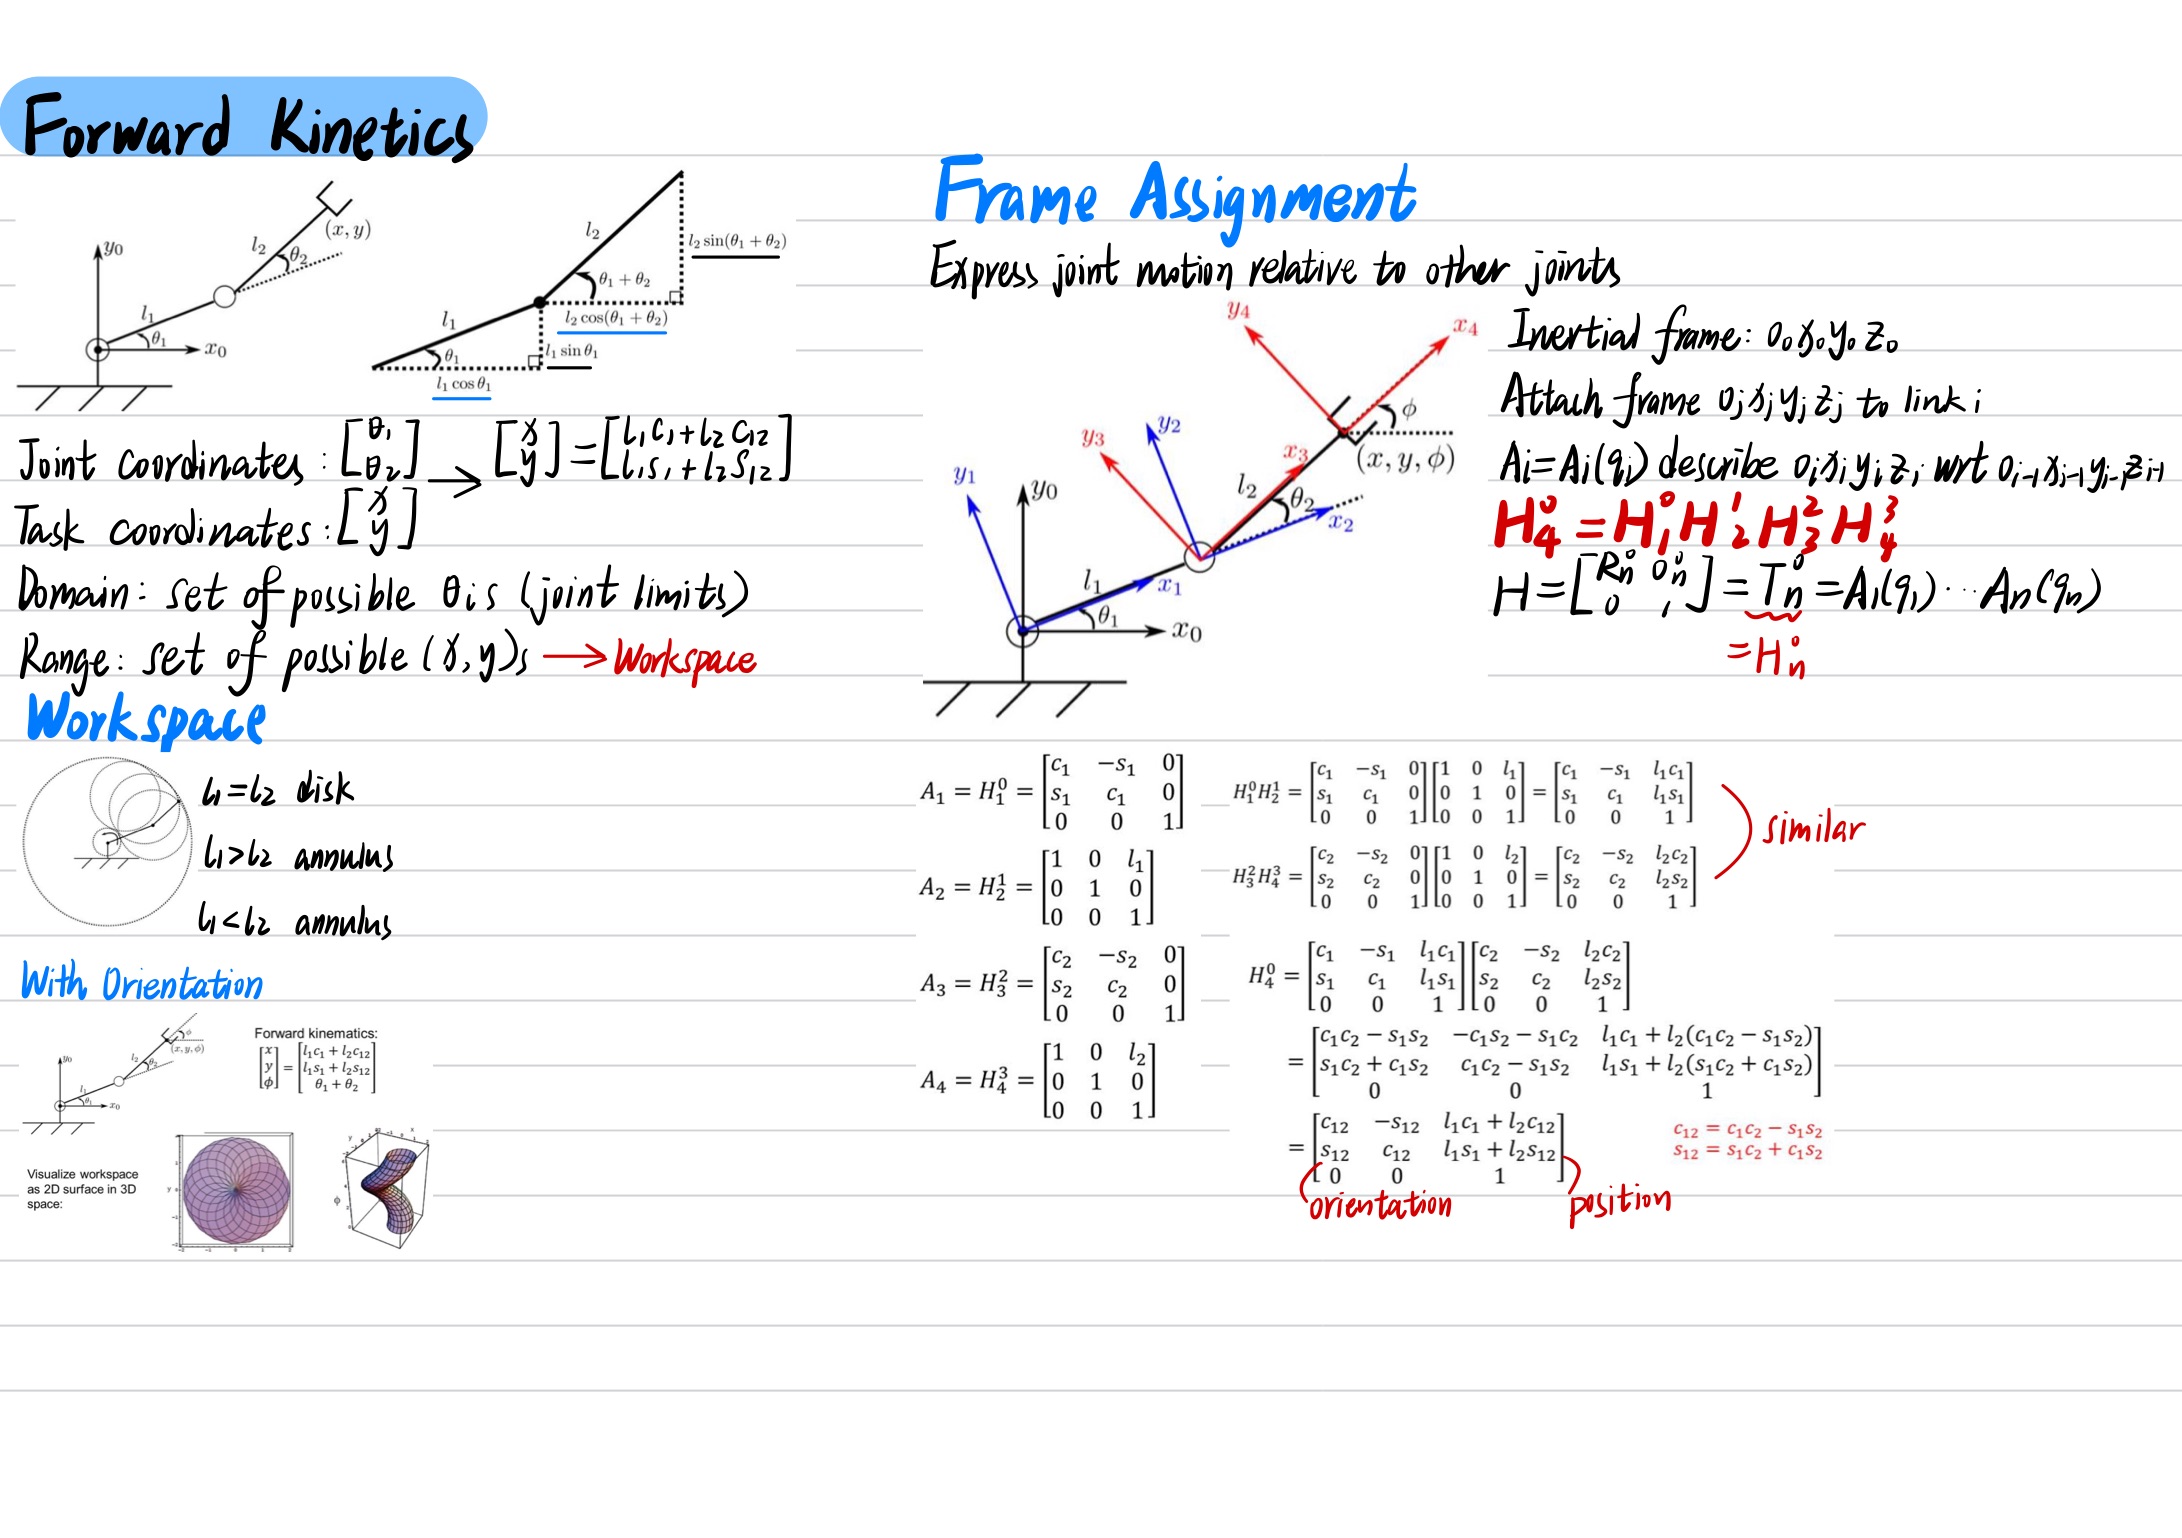 Forward Kinetics
y₀
l₁
θ₁
x₀
l₂
θ₂
(x, y)
l₁
θ₁
l₁ cos θ₁
l₁ sin θ₁
l₂
θ₁ + θ₂
l₂ cos(θ₁ + θ₂)
l₂ sin(θ₁ + θ₂)
Joint coordinates: [θ₁ θ₂] → [x y] = [l₁c₁+l₂c₁₂ l₁s₁+l₂s₁₂]
Task coordinates: [x y]
Domain: set of possible θis (joint limits)
Range: set of possible (x,y)s → Workspace
Workspace
l₁=l₂ disk
l₁>l₂ annulus
l₁<l₂ annulus
With Orientation
y₀
l₁
θ₁
x₀
l₂
θ₂
ϕ
(x, y, ϕ)
Forward kinematics:
[x y ϕ] = [l₁c₁ + l₂c₁₂ l₁s₁ + l₂s₁₂ θ₁ + θ₂]
Visualize workspace
as 2D surface in 3D
space:
Frame Assignment
Express joint motion relative to other joints
y₄
x₄
ϕ
(x, y, ϕ)
y₃
y₂
x₃
l₂
θ₂
x₂
y₁
y₀
l₁
x₁
θ₁
x₀
Inertial frame: 0₀x₀y₀z₀
Attach frame 0ⱼxⱼyⱼzⱼ to link i
Ai=Ai(qi) describe 0ᵢxᵢyᵢzᵢ wrt 0ᵢ₋₁xᵢ₋₁yᵢ₋₁zᵢ₋₁
H₄⁰ = H₁⁰ H₂¹ H₃² H₄³
H = [Rₙ⁰ 0ₙ⁰ 0 1] = Tₙ⁰ = A₁(q₁)···Aₙ(qₙ)
= Hₙ⁰
A₁ = H₁⁰ = [c₁ −s₁ 0 s₁ c₁ 0 0 0 1]
A₂ = H₂¹ = [1 0 l₁ 0 1 0 0 0 1]
A₃ = H₃² = [c₂ −s₂ 0 s₂ c₂ 0 0 0 1]
A₄ = H₄³ = [1 0 l₂ 0 1 0 0 0 1]
H₁⁰H₂¹ = [c₁ −s₁ 0 s₁ c₁ 0 0 0 1][1 0 l₁ 0 1 0 0 0 1] = [c₁ −s₁ l₁c₁ s₁ c₁ l₁s₁ 0 0 1]
similar
H₃²H₄³ = [c₂ −s₂ 0 s₂ c₂ 0 0 0 1][1 0 l₂ 0 1 0 0 0 1] = [c₂ −s₂ l₂c₂ s₂ c₂ l₂s₂ 0 0 1]
H₄⁰ = [c₁ −s₁ l₁c₁ s₁ c₁ l₁s₁ 0 0 1][c₂ −s₂ l₂c₂ s₂ c₂ l₂s₂ 0 0 1]
= [c₁c₂ − s₁s₂ −c₁s₂ − s₁c₂ l₁c₁ + l₂(c₁c₂ − s₁s₂) s₁c₂ + c₁s₂ c₁c₂ − s₁s₂ l₁s₁ + l₂(s₁c₂ + c₁s₂) 0 0 1]
= [c₁₂ −s₁₂ l₁c₁ + l₂c₁₂ s₁₂ c₁₂ l₁s₁ + l₂s₁₂ 0 0 1]
c₁₂ = c₁c₂ − s₁s₂
s₁₂ = s₁c₂ + c₁s₂
orientation
position